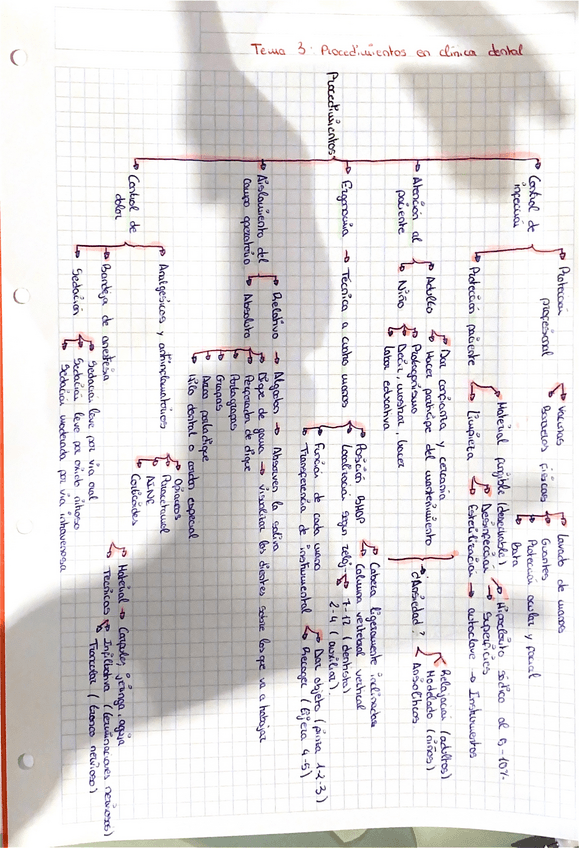 Tema 3: Procedimientos en clínica dental
Procedimientos
Control de
infección
Protección
profesional
Vacunas
Barreras físicas
Lavado de manos
Guantes
Protección ocular y facial
Bata
Protección paciente
Material fungible (desechable)
Limpieza
Desinfección
Hipoclorito sódico al 5-10%
Superficies
Esterilización → autoclave → Instrumentos
Atención al
paciente
Adulto
Dar confianza y cercanía
Hacer partícipe del mantenimiento
Niño
Protagonismo
Decir, mostrar, hacer
Labor educativa
¿Ansiedad?
Relajación (adultos)
Modelado (niños)
Ansiolíticos
Ergonomía → Técnica a cuatro manos
Posición BHOP
Cabeza ligeramente inclinada
Columna vertebral vertical
Localización según reloj
7-12 (dentista)
2-4 (auxiliar)
Función de cada mano
Transferencia de instrumental
Dar objeto (pinza 1-2-3)
Recoger (tijera 4-5)
Aislamiento del
campo operatorio
Relativo → Algodón → Absorven la saliva
Absoluto
Dique de goma → visualizar los dientes sobre los que va a trabajar
Perforador de dique
Portagrapas
Grapas
Arco portadique
Hilo dental o cordón especial
Control de
dolor
Analgésicos y antiinflamatorios
Opiáceos
Paracetamol
AINE
Corticoides
Bandeja de anestesia
Material → Carpules, jeringa, aguja
Técnicas
Infiltrativa (terminaciones nerviosas)
Troncular (tronco nervioso)
Sedación
Sedación leve por vía oral
Sedación leve por óxido nitroso
Sedación moderada por vía intravenosa